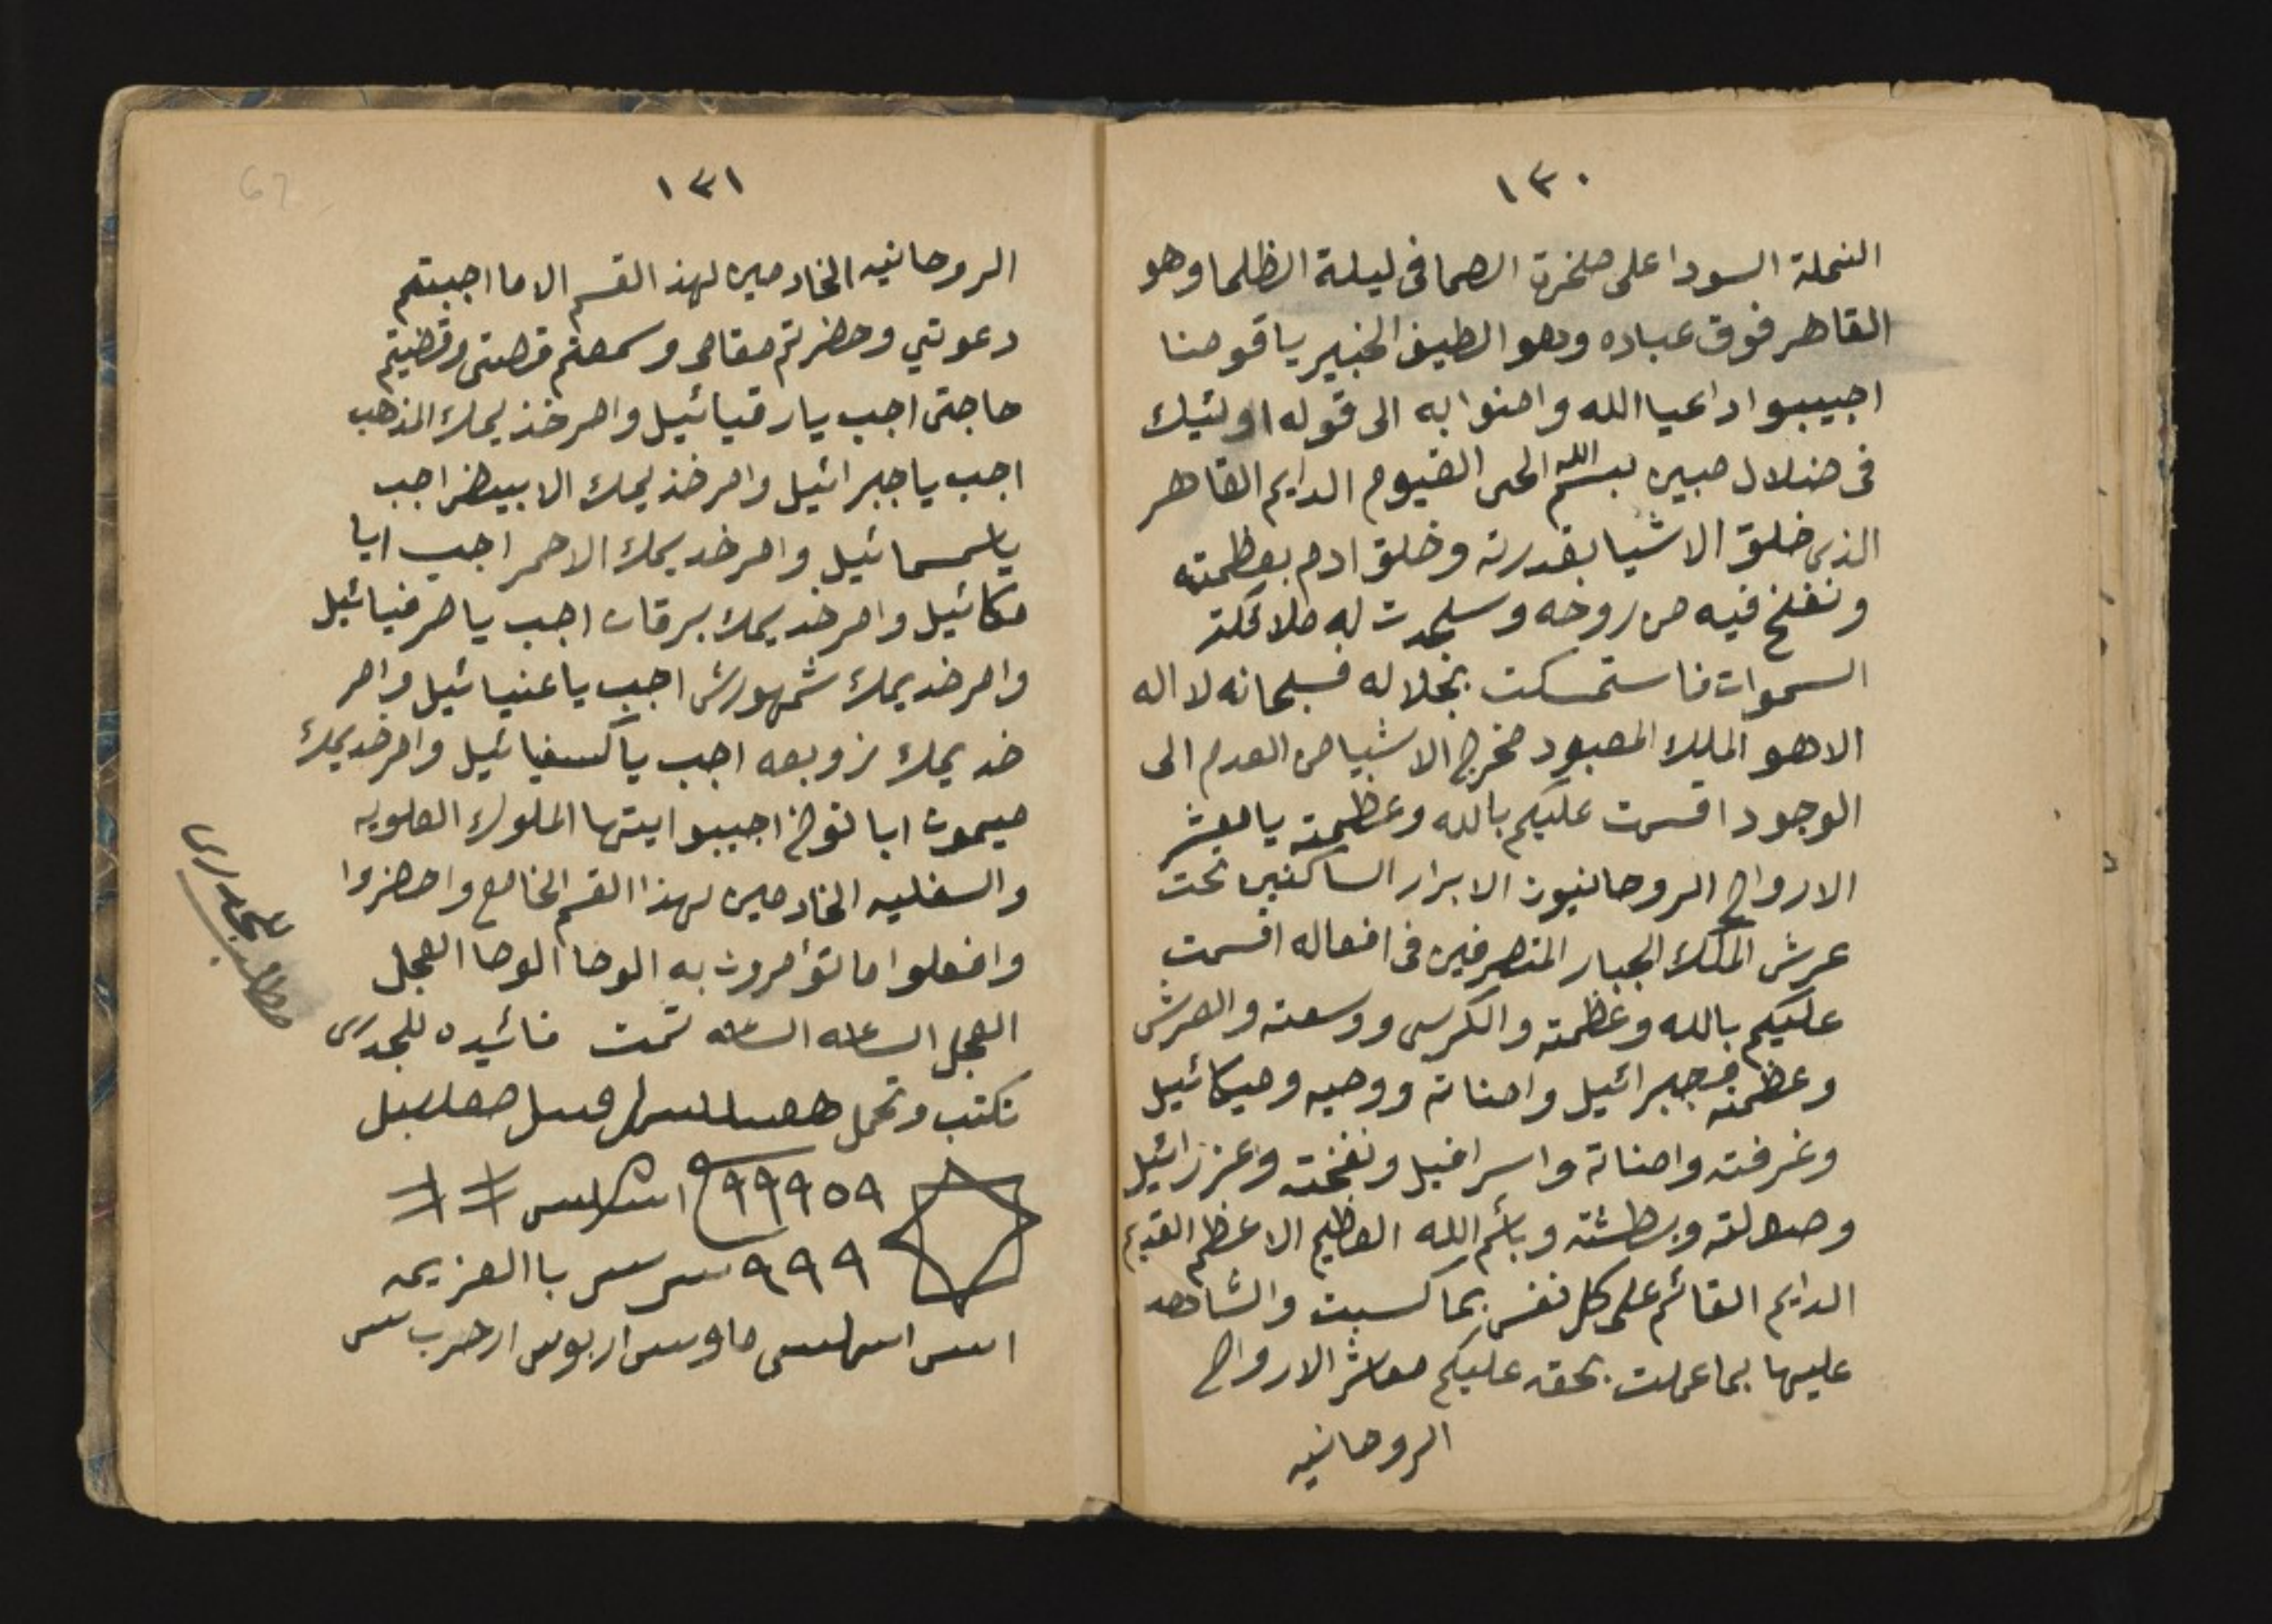 ١٣٠
النملة السودا على صخرة الصما فى ليلة الظلما وهو
القاهر فوق عباده وهو الطيف الخبير ياقومنا
اجيبوا داعيا الله وامنوا به الى قوله اوليئك
فى ضلال مبين بسم الله الحى القيوم الدايم القاهر
الذى خلق الاشيا بقدرته وخلق ادم بعظمته
ونفخ فيه من روحه وسجدت له ملائكة
السموات فاستمسكت بجلاله فسبحانه لا اله
الا هو الملك المعبود مخرج الاشيا من العدم الى
الوجود اقسمت عليكم بالله وعظمته يا معشر
الارواح الروحانيون الابرار الساكنين تحت
عرش الملك الجبار المتصرفين فى افعاله اقسمت
عليكم بالله وعظمته والكرسى ووسعته والعرش
وعظمته فجبرائيل وامناته ووحيه وميكائيل
وغرفته وامناته واسرافيل ونفخته وعزرائيل
وصولته وبطشته وبأسم الله العظيم الاعظم القديم
الدايم القائم على كل نفس بما كسبت والشاهد
عليها بما عملت بحقه عليكم معاشر الارواح
الروحانيه
١٣١
الروحانيه الخادمين لهذ القسم الا ما اجبتم
دعوتي وحضرتم مقامى وسمعتم قصتى وقضيتم
حاجتى اجب يا رقيائيل وامر خذيمك المذهب
اجب يا جبرائيل وامر خذيمك الابيض اجب
ياسمسمائيل وامر خديمك الاحمر اجب ايا
مكائيل وامر خديمك برقان اجب يا صرفيائيل
وامر خديمك شمهورش اجب يا عنيائيل وامر
خديمك زوبعه اجب ياكسفيائيل وامر خديمك
ميمون ابا نوخ اجيبوا ايتها الملوك العلويه
والسفليه الخادمين لهذا القسم الخامع واحضروا
وافعلوا ما تؤامرون به الوحا الوحا العجل
العجل الساعه الساعه تمت فائيده للجدرى
تكتب وتحمل
٩٩٩٥٩
٩٩٩ سر سس با العزيمه
اسس
مطلب للجدرى